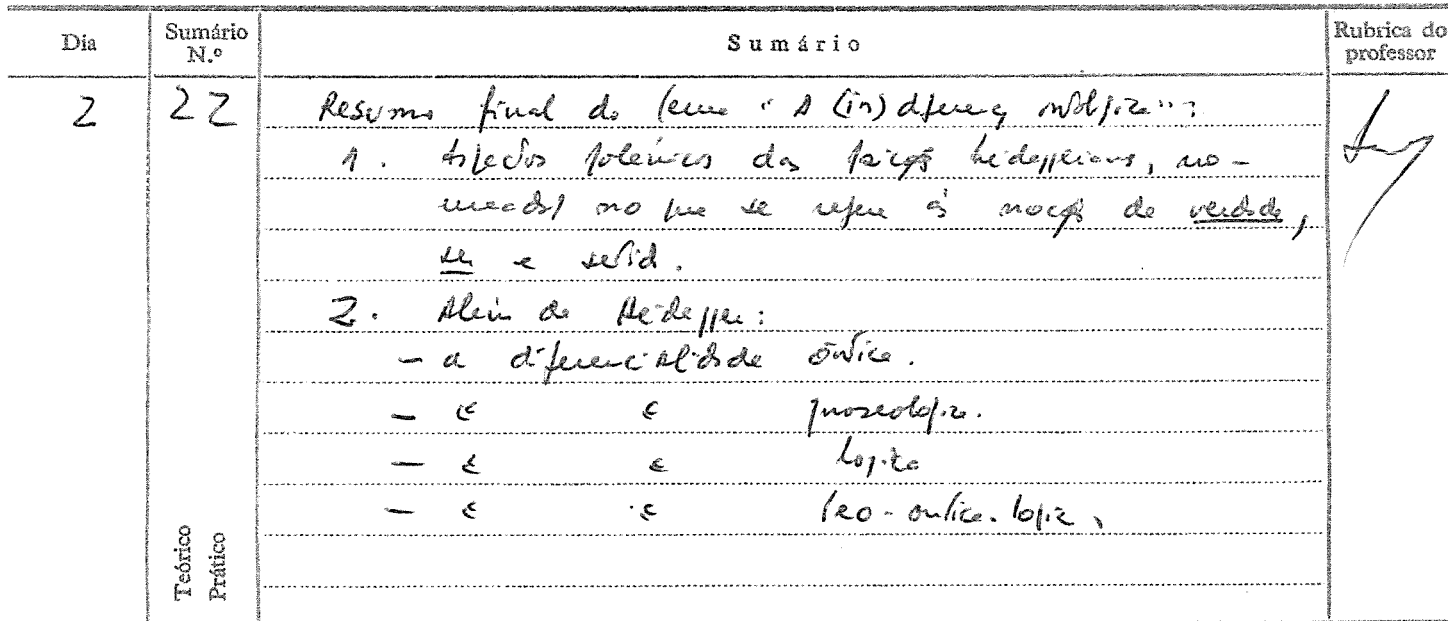 Dia
Sumário N.º
Sumário
Rubrica do professor
2
22
Resumo final do tema "A (in)diferença ontológica":
1. Aspectos polémicos das posições heideggerianas, no-
no que se refere às noções de verdade,
ser e sentido.
2. Além de Heidegger:
- a diferencialidade ôntica.
- " " gnoseológica.
- " " lógica
- " " teo-ôntico-lógica.
Teórico
Prático